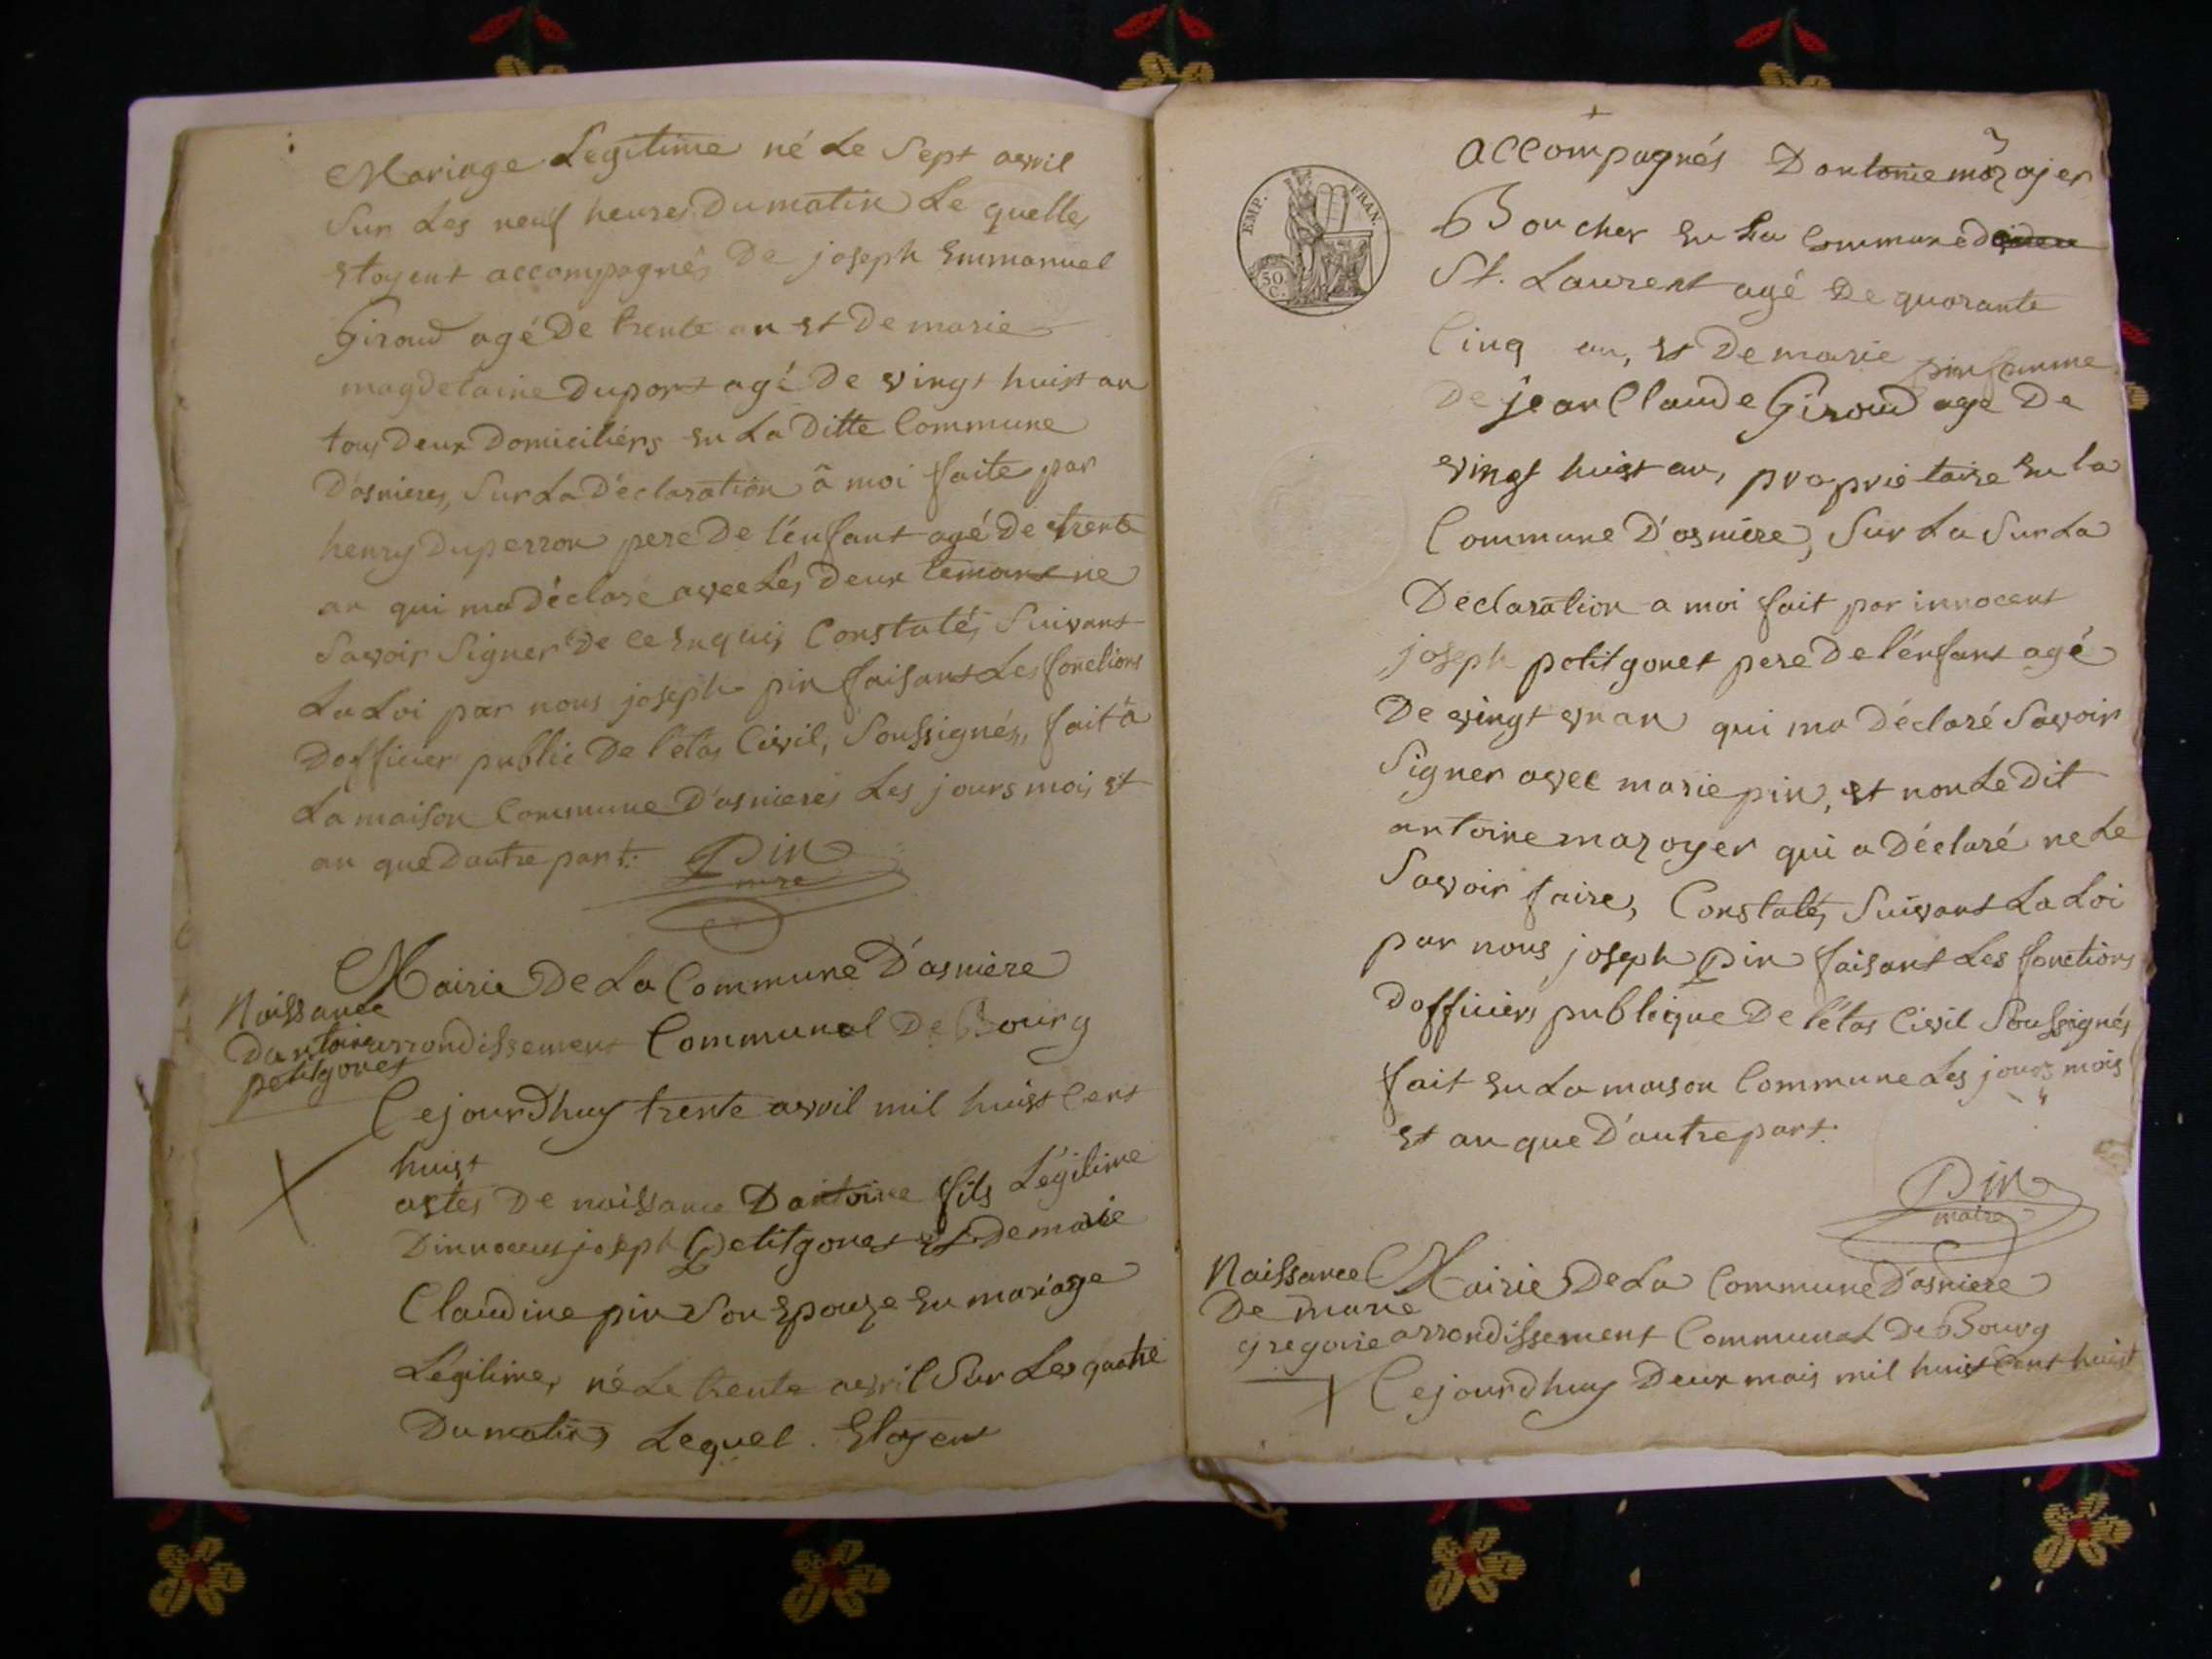 Mariage Legitime né Le Sept avril
Sur Les neuf heures Dumatin Le quelles
Etoyent accompagnés De joseph Emmanuel
Giroud agé De trente an et De marie
magdelaine Duport agé De vingt huist an
tous Deux Domiciliérs en La Ditte Commune
D'asnieres, Sur La Déclaration à moi faite par
henry Duperron pere De l'énfant agé De trente
an qui ma Déclaré avec Les Deux temoins ne
Savoir Signer De ce Enquis Constatés Suivant
La Loi par nous joseph pin faisant Les fonctions
Dofficier public De l'état Civil, Soussignés, fait à
La maison Commune D'asnieres Les jours mois et
an que Dautre part.
Pin
maire
Mairie De La Commune D'asniere
Naissance
Dantoine
petitgonet
arrondissement Communal De Bourg
Cejourdhuy trente avril mil huist Cent
huist
actes De naissance Dantoine fils Légitime
Dinnocent joseph Petitgonet et De marie
Claudine pin Son Epouze en mariage
Légitime, né Le trente avril Sur Les quatre
Du matin Lequel. Etoyent
EMP. FRAN.
50
C.
accompagnés Dantoine mazoyer
Boucher en La Commune
St. Laurent agé De quarante
Cinq an, et De marie pin femme
De jean Claude Giroud age De
vingt huist an, propriétaire en la
Commune D'asniere, Sur La Sur La
Déclaration a moi fait par innocent
joseph petitgonet pere De l'énfant agé
De vingt un an qui ma Déclaré Savoir
Signer avec marie pin, et non Le Dit
antoine mazoyer qui a Déclaré ne Le
Savoir faire, Constatés Suivant La Loi
par nous joseph Pin faisant Les fonctions
Dofficiers publique De l'état Civil Soussignés
fait en La maison Commune Les jours mois
et an que D'autre part.
Pin
maire
Naissance
De marie
gregoire
Mairie De La Commune D'asniere
arrondissement Communal De Bourg
Cejourdhuy Deux mais mil huist Cent huist